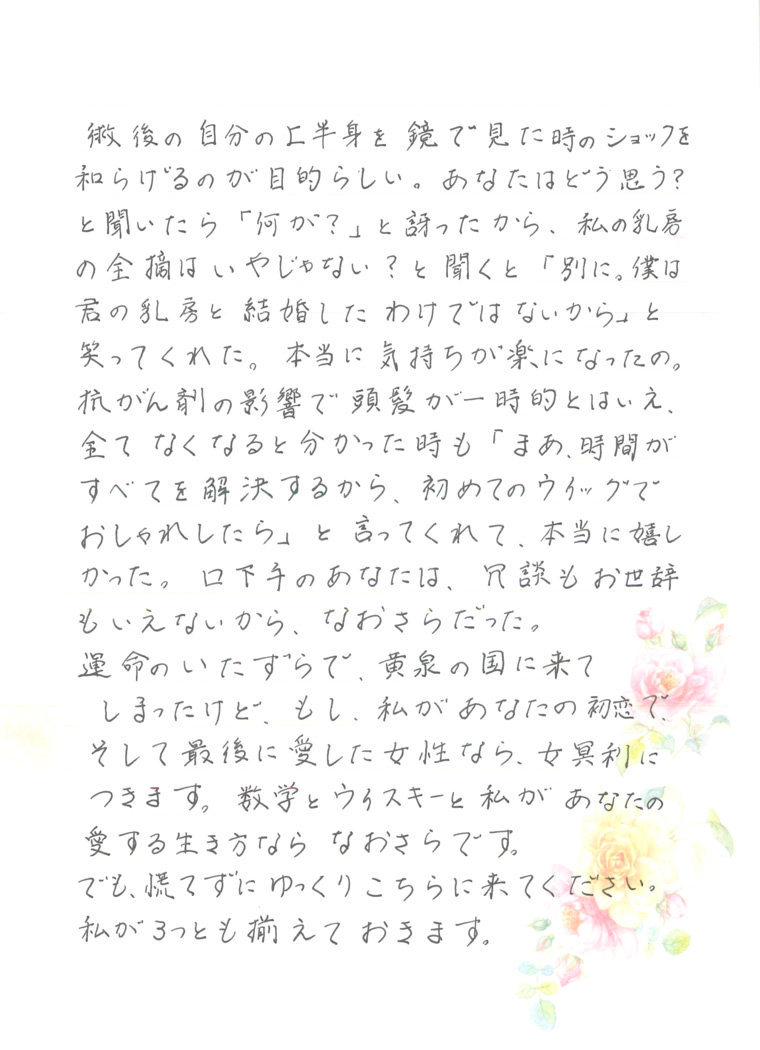 術後の自分の上半身を鏡で見た時のショックを
和らげるのが目的らしい。あなたはどう思う?
と聞いたら「何が?」と訝ったから、私の乳房
の全摘はいやじゃない?と聞くと「別に。僕は
君の乳房と結婚したわけではないから」と
笑ってくれた。本当に気持ちが楽になったの。
抗がん剤の影響で頭髪が一時的とはいえ、
全てなくなると分かった時も「まあ、時間が
すべてを解決するから、初めてのウイッグで
おしゃれしたら」と言ってくれて、本当に嬉し
かった。口下手のあなたは、冗談もお世辞
もいえないから、なおさらだった。
運命のいたずらで、黄泉の国に来て
しまったけど、もし、私があなたの初恋で、
そして最後に愛した女性なら、女冥利に
つきます。数学とウイスキーと私があなたの
愛する生き方ならなおさらです。
でも、慌てずにゆっくりこちらに来てください。
私が3つとも揃えておきます。